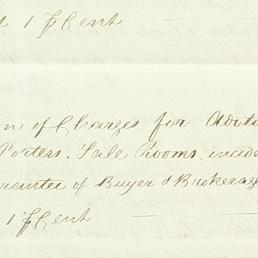 1 ⅌ Cent
on of Charges for Adve
Porters, Sale Rooms, incide
arantee of Buyer & Brokerage
1 ⅌ Cent